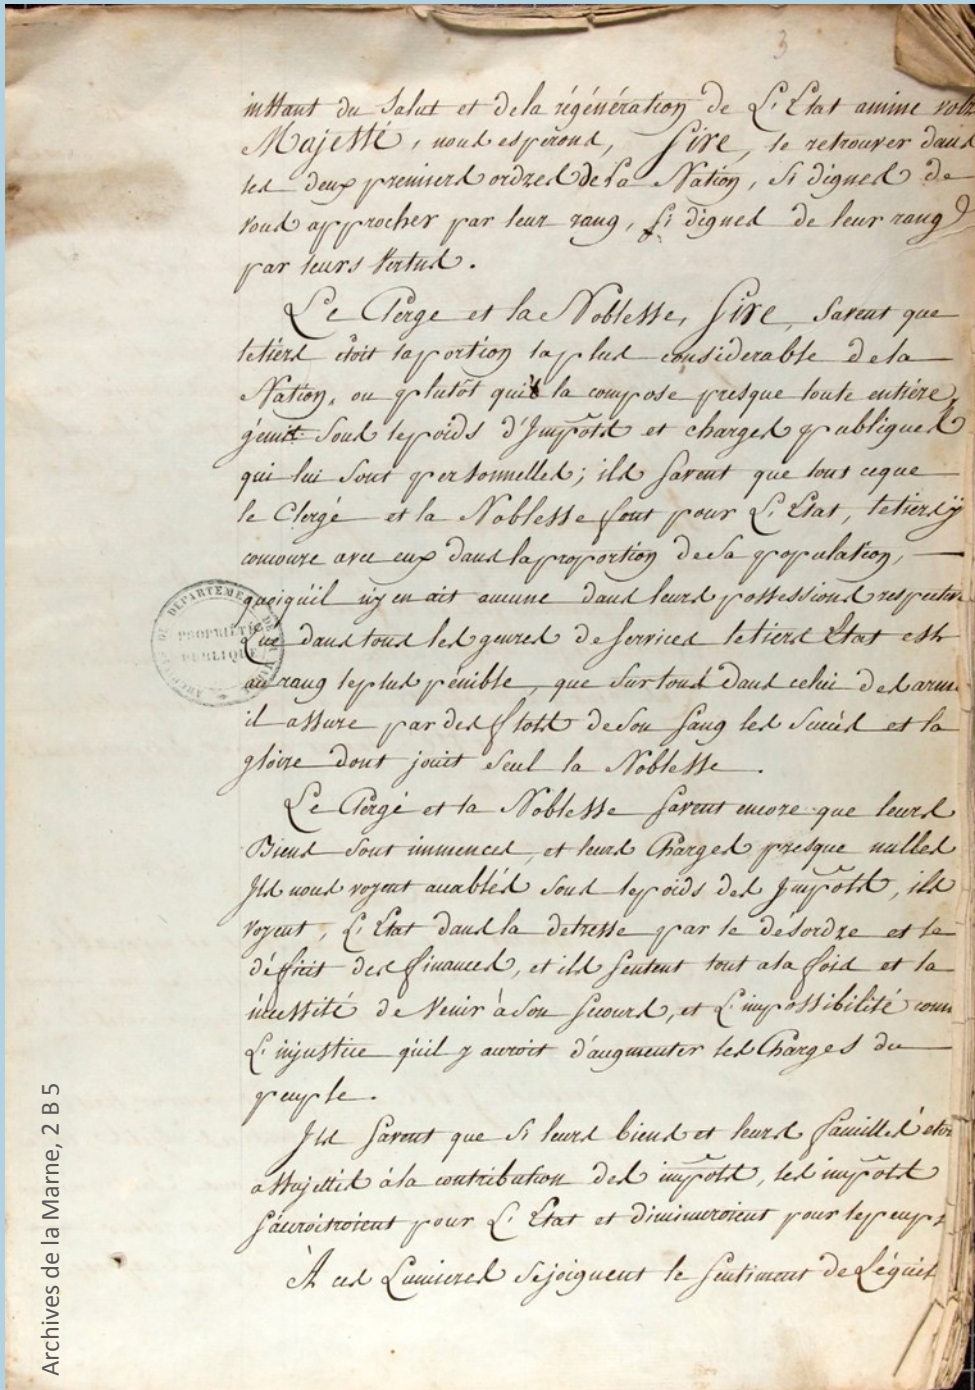 3
instant du Salut et de la régénération de L'Etat anime votre
Majesté, nous espérons, Sire, le retrouver dans
les deux premiers ordres de la Nation, Si dignes de
vous approcher par leur rang, Si dignes de leur rang
par leurs Vertus.
Le Clerge et la Noblesse, Sire, Savent que
le tiers étoit la portion la plus considerable de la
Nation, ou plutôt qui la compose presque toute entiére,
gemit Sous le poids d'Impôts et charges publiques
qui lui Sont personnelles; ils Savent que tout ce que
le Clergé et la Noblesse font pour L'Etat, le tiers ÿ
concoure avec eux dans la proportion de Sa population,
quoiqu'il n'y en ait aucune dans leurs possessions respectiv
Que dans tous les genres de Services le tiers Etat est
au rang le plus pénible, que Sur tous dans celui des arm
il assure par des flots de Son Sang les Succès et la
gloire dont jouit Seul la Noblesse.
Le Clergé et la Noblesse Savent encore que leurs
Biens Sont immences, et leurs Charges presque nulles
Ils nous voyent accablés Sous le poids des Impôts, ils
voyent, L'Etat dans la detresse par le désordre et le
déficit des finances, et ils Sentent tout a la fois et la
nécessité de Venir à Son Secours, et L'impossibilité comm
L'injustice qu'il y auroit d'augmenter les Charges du
peuple.
Ils Savent que Si leurs biens et leurs familles étoi
assujettis à la contribution des impôts, les impôts
S'accroitroient pour L'Etat et diminueroient pour le peup
À ces Lumieres Se joignent le Sentiment de L'équit
ARCHIVES DU DEPARTEMENT
PROPRIÉTÉ
PUBLIQUE
Archives de la Marne, 2 B 5